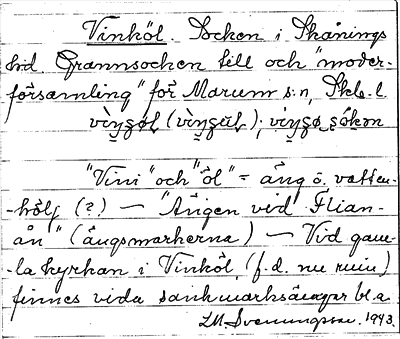 Vinköl. Socken i Skånings
hd. Grannsocken till och "moder-
församling" för Marum s:n, Skb. l.
"Vini" och "öl" = äng o. vatten-
-hölj (?) — "Ängen vid Flian-
ån" (ängsmarkerna) — Vid gam-
-la kyrkan i Vinköl (f.d. nu ruin)
finnes vida sankmarksängar bl.a.
LM. Svenungsson. 1943.